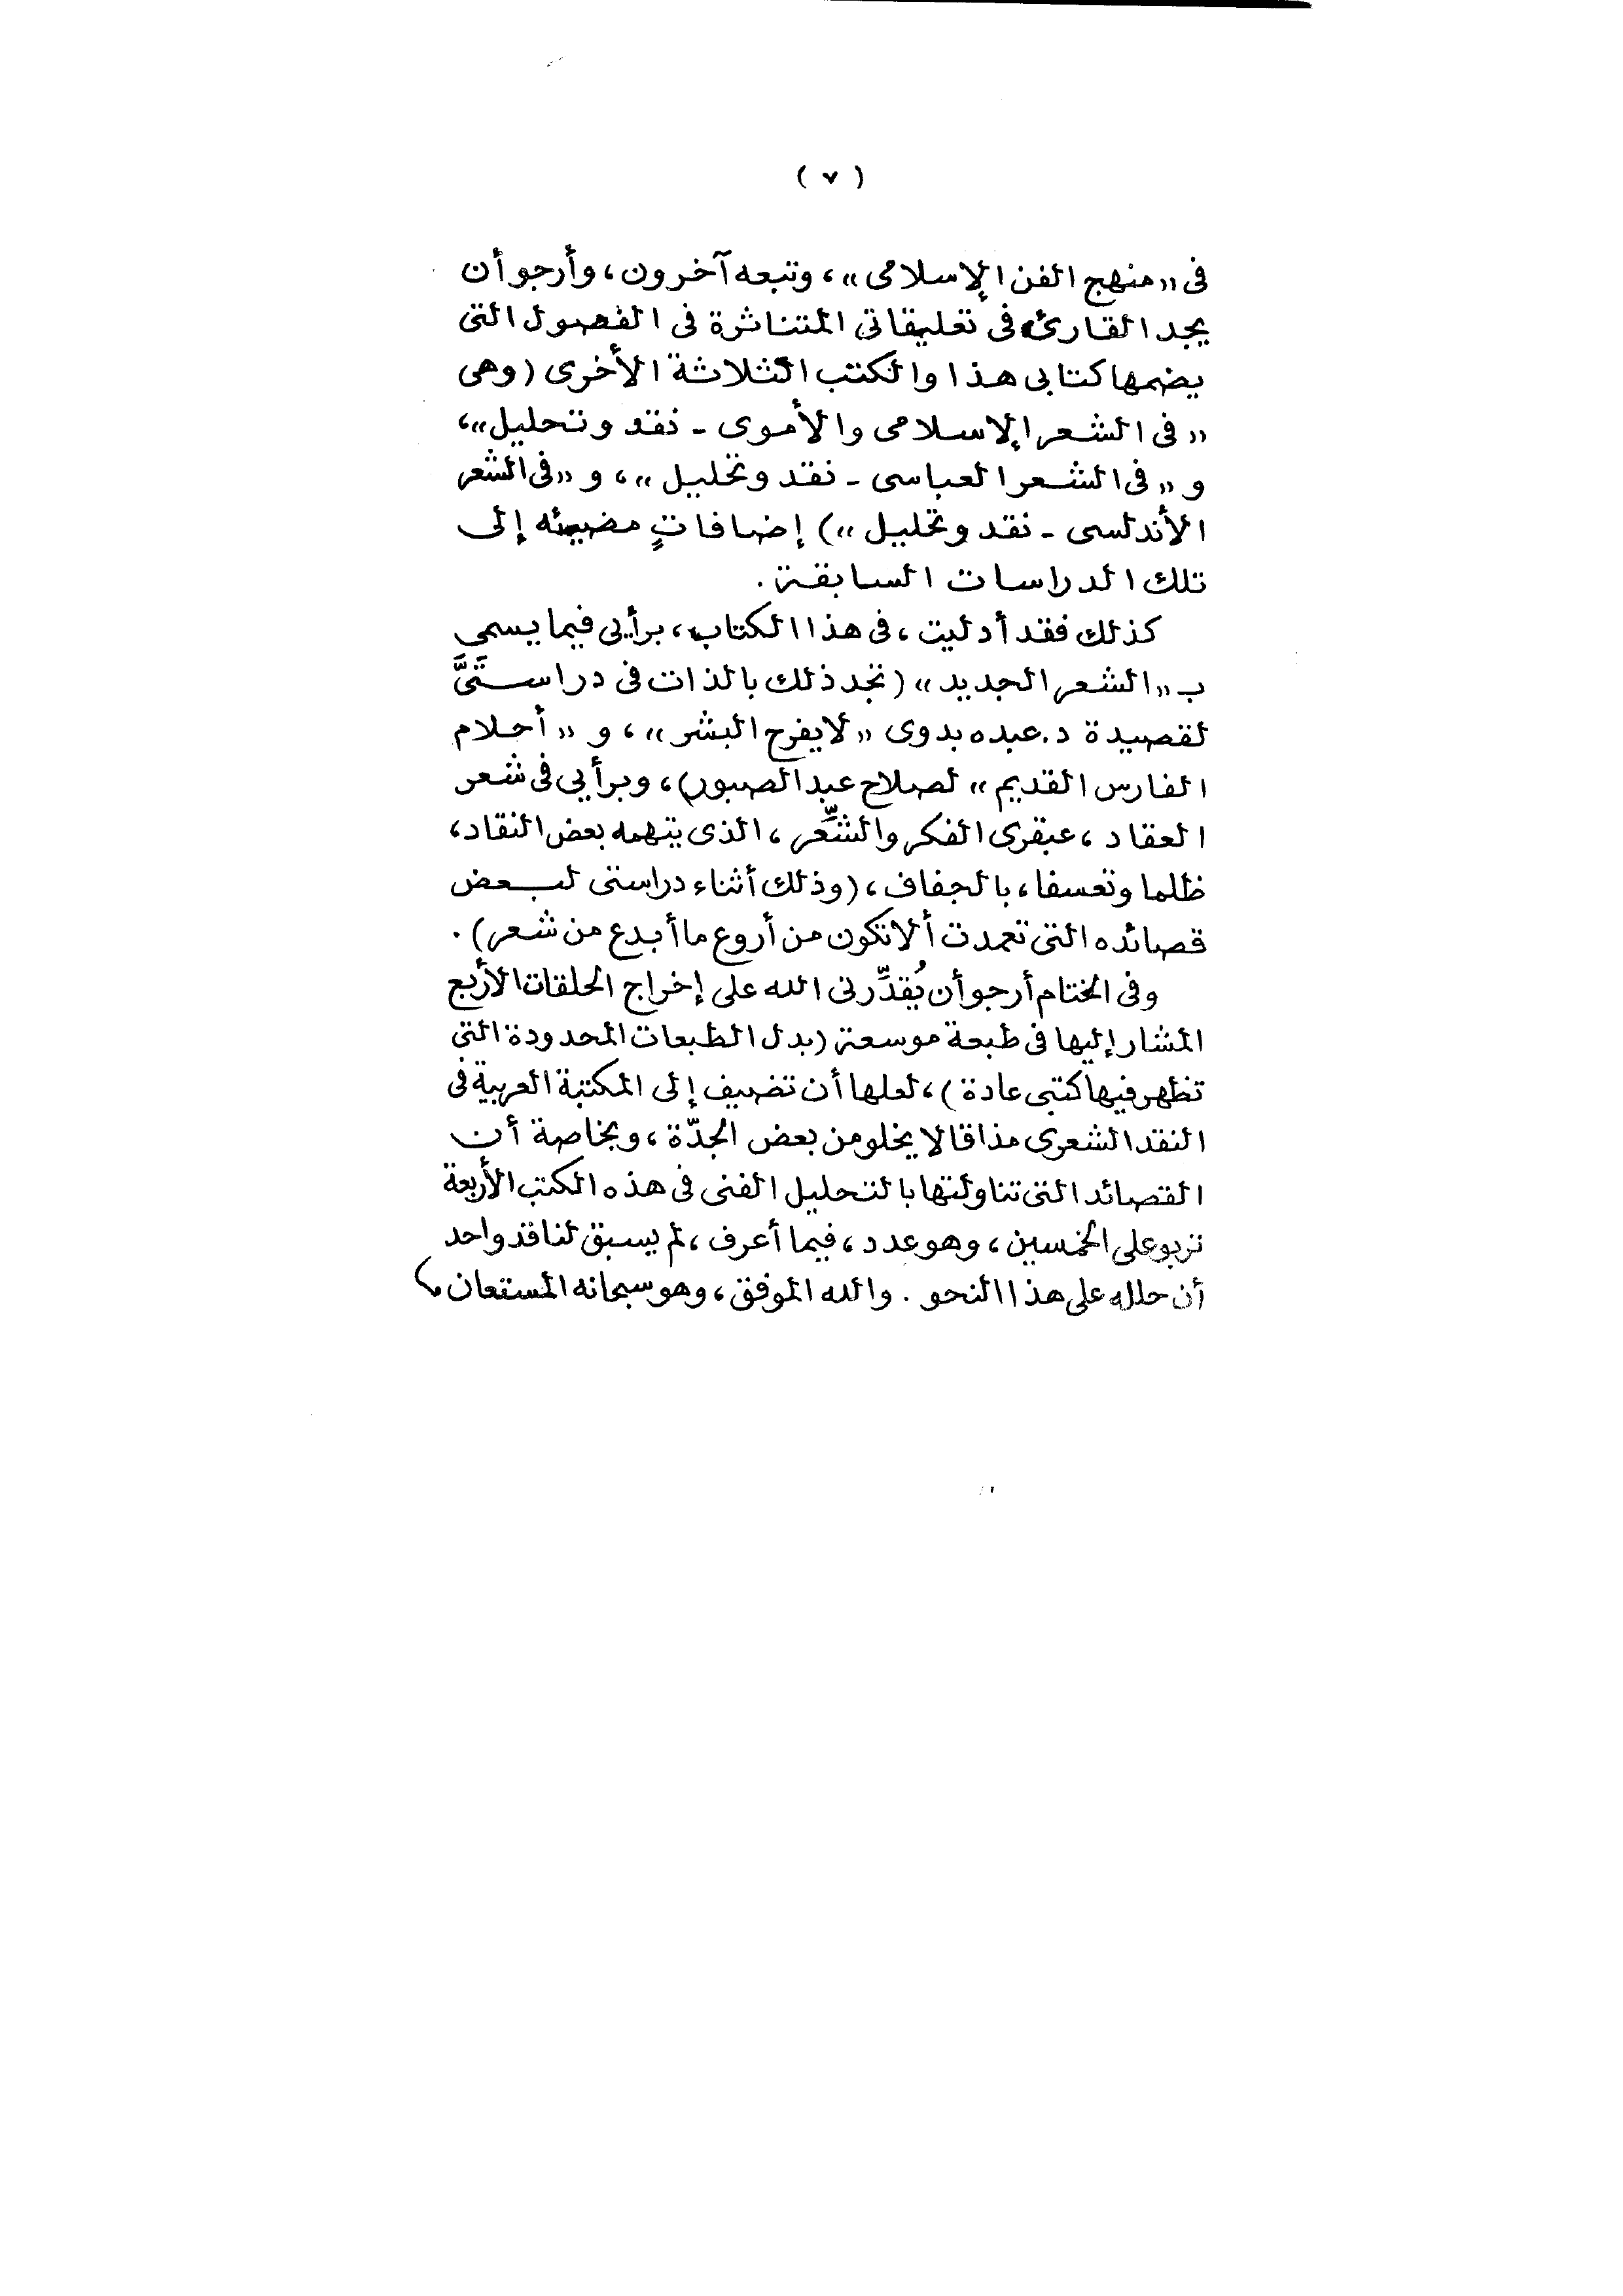 ( ٧ )
فى «منهج الفن الإسلامى»، وتبعه آخرون، وأرجو أن
يجد القارئ فى تعليقاتى المتناثرة فى الفصول التى
يضمها كتابى هذا والكتب الثلاثة الأخرى (وهى
«فى الشعر الإسلامى والأموى - نقد وتحليل»،
و «فى الشعر العباسى - نقد وتحليل»، و «فى الشعر
الأندلسى - نقد وتحليل») إضافاتٍ مضيئه إلى
تلك الدراسات السابقة.
كذلك فقد أدليت، فى هذا الكتاب، برأيى فيما يسمى
بـ «الشعر الجديد» (تجد ذلك بالذات فى دراستَىَّ
لقصيدة د. عبده بدوى «لا يفرح البشر»، و «أحلام
الفارس القديم» لصلاح عبد الصبور)، وبرأيى فى شعر
العقاد، عبقرى الفكر والشِّعر، الذى يتهمه بعض النقاد،
ظلما وتعسفا، بالجفاف، (وذلك أثناء دراستى لبعض
قصائده التى تعمدت ألا تكون من أروع ما أبدع من شعر).
وفى الختام أرجو أن يُقدِّرنى الله على إخراج الحلقات الأربع
المشار إليها فى طبعة موسعة (بدل الطبعات المحدودة التى
تظهر فيها كتبى عادة)، لعلها أن تضيف إلى المكتبة العربية فى
النقد الشعرى مذاقا لا يخلو من بعض الجدّة، وبخاصة أن
القصائد التى تناولتها بالتحليل الفنى فى هذه الكتب الأربعة
تربو على الخمسين، وهو عدد، فيما أعرف، لم يسبق لناقد واحد
أن حلله على هذا النحو. والله الموفق، وهو سبحانه المستعان.